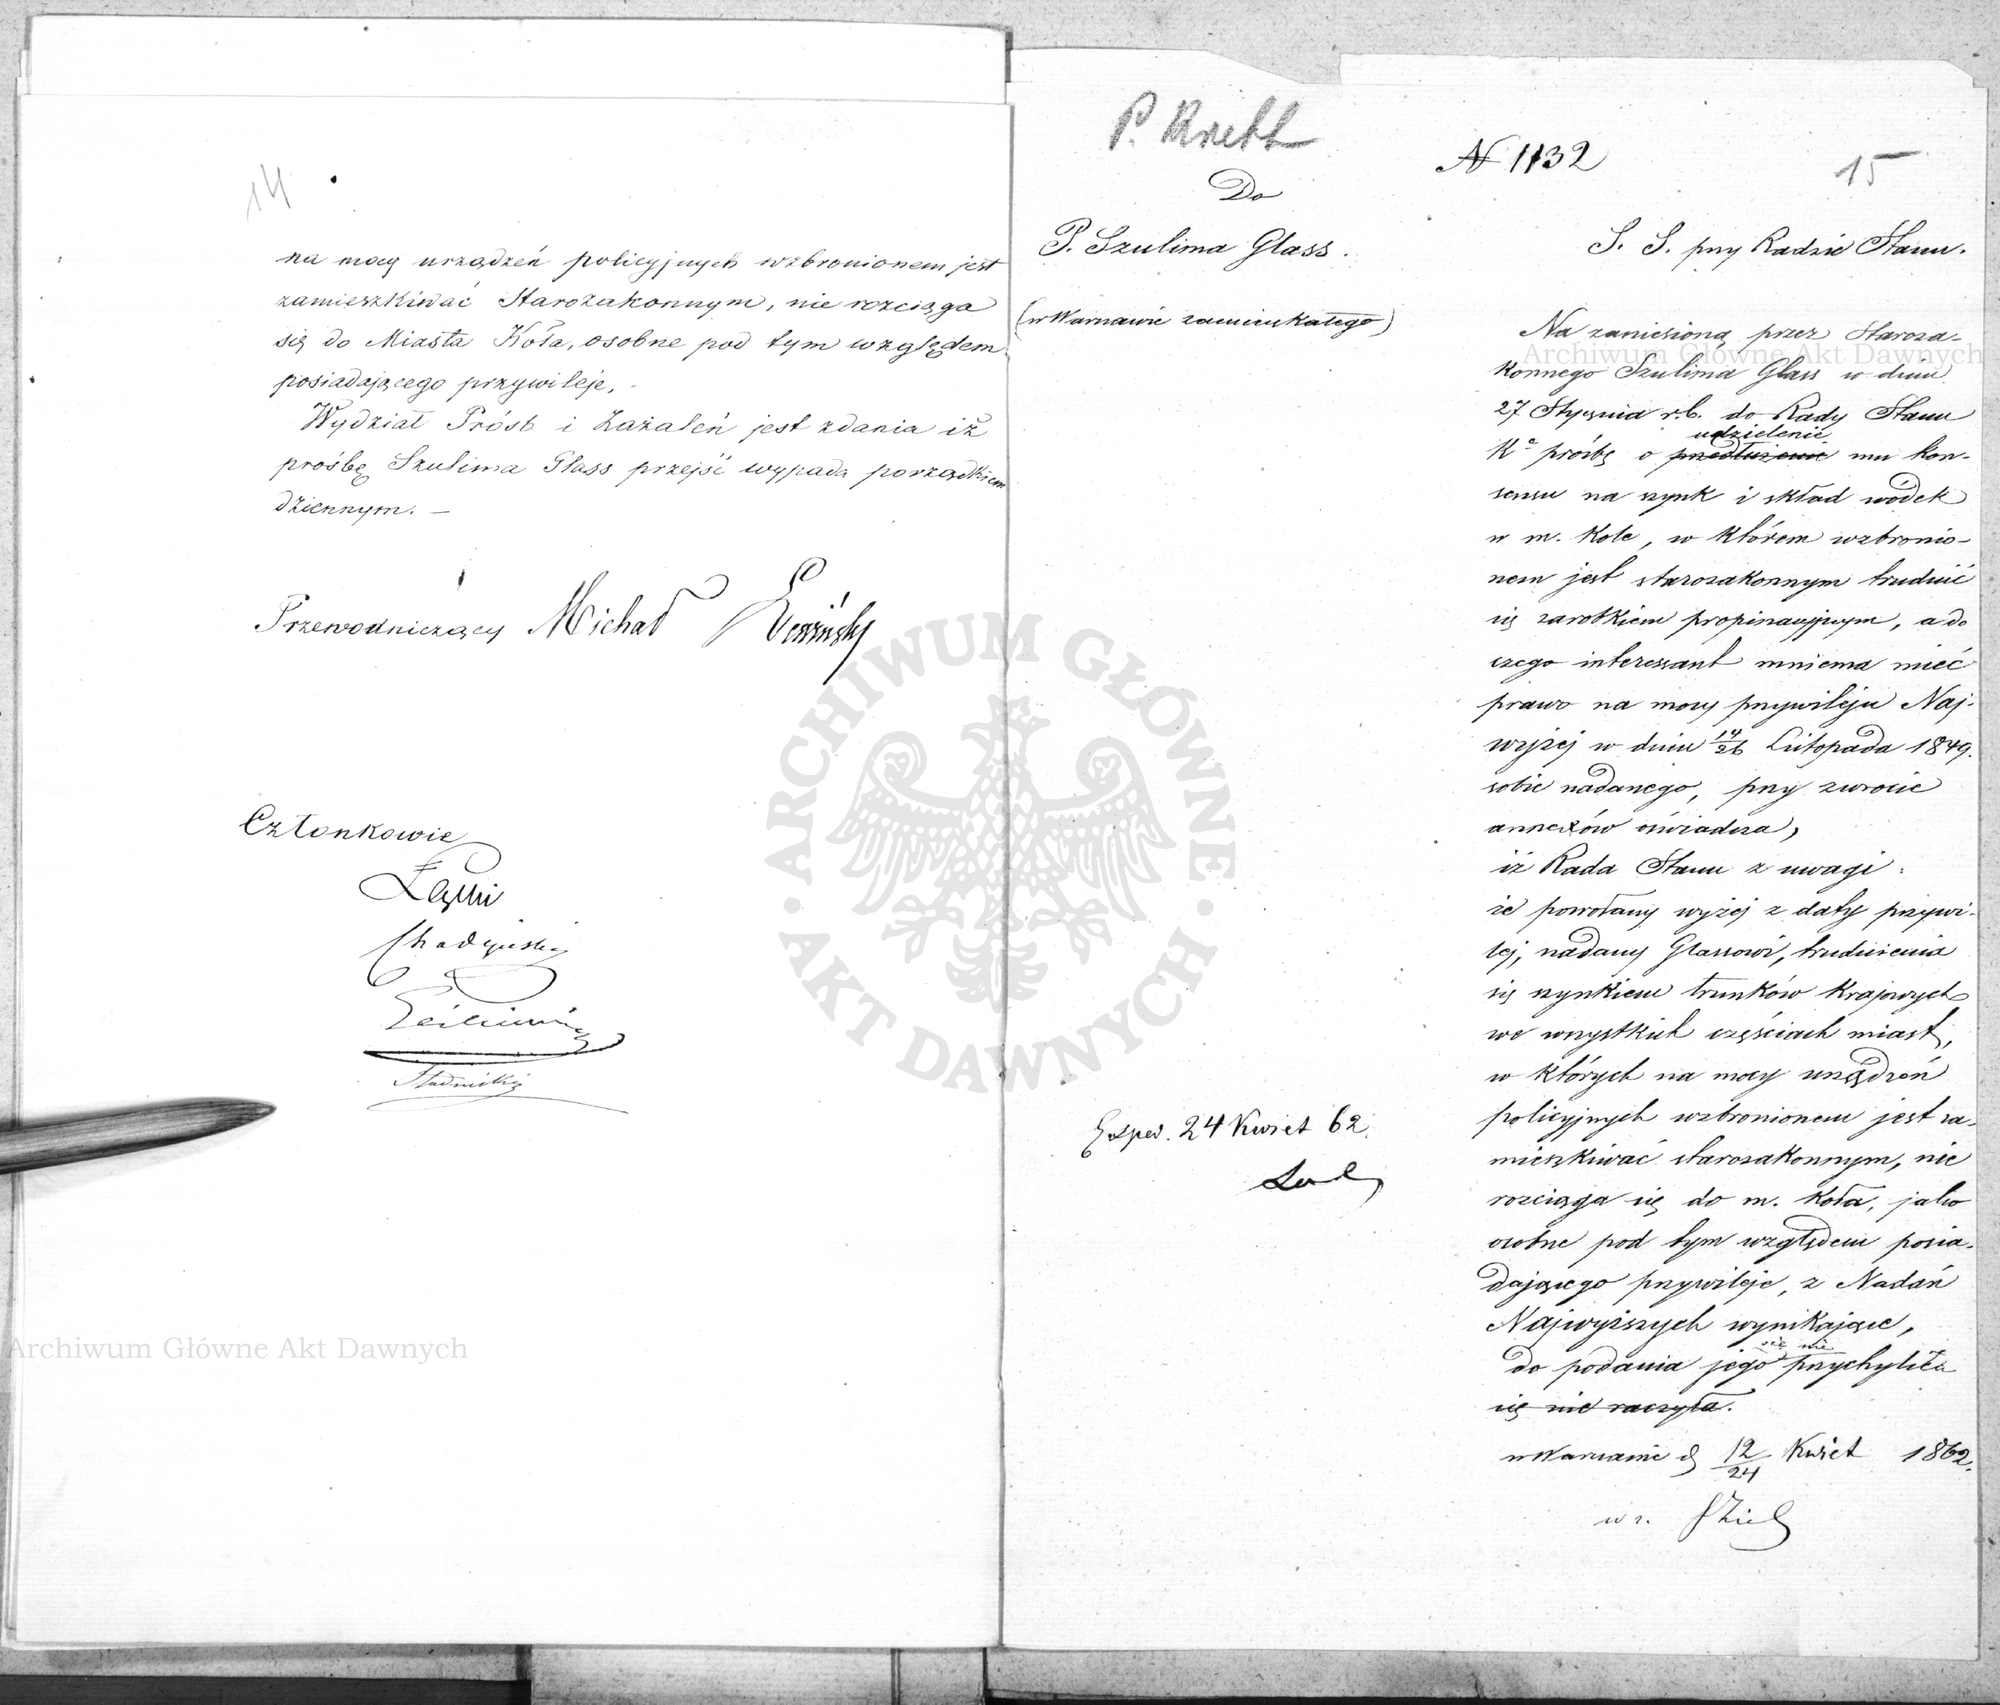 14
na mocy urządzeń policyjnych wzbronionem jest
zamieszkiwać Starozakonnym, nie rozciąga
się do Miasta Koła, osobne pod tym względem
posiadającego przywileje,
Wydział Próśb i Zażaleń jest zdania iż
prośbę Szulima Glass przejść wypada porządkiem
dziennym. —
Przewodniczący Michał
Członkowie
Łęski
P.
Do
P. Szulima Glass.
(w Warszawie zamieszkałego)
Exped. 24 Kwiet 62.
№ 1132
15
S. S. przy Radzie Stanu.
Na zaniesioną przez Staroza-
konnego Szulima Glass w dniu
27 Stycznia r.b. do Rady Stanu
udzielenie
K<sup>a</sup> prośbę o przedłużenie mu kon-
sensu na szynk i skład wódek
w m. Kole, w którem wzbronio-
nem jest starozakonnym trudnić
się zarobkiem propinacyjnym, a do
czego interessant mniema mieć
prawo na mocy przywileju Naj-
wyżej w dniu 14/26 Listopada 1849.
sobie nadanego, przy zwrocie
annexów oświadcza,
iż Rada Stanu z uwagi:
że powołany wyżej z daty przywi-
lej, nadany Glassowi, trudnienia
się szynkiem trunków krajowych
we wszystkich częściach miast,
w których na mocy urządzeń
policyjnych wzbronionem jest za-
mieszkiwać starozakonnym, nie
rozciąga się do m. Koła, jako
osobne pod tym względem posia-
dającego przywileje, z Nadań
Najwyższych wynikające,
się nie
do podania jego przychyliła
się nie raczyła.
w Warszawie d 12/24 Kwiet 1862.
w z.
Archiwum Główne Akt Dawnych
Archiwum Główne Akt Dawnych
ARCHIWUM GŁÓWNE · AKT DAWNYCH ·